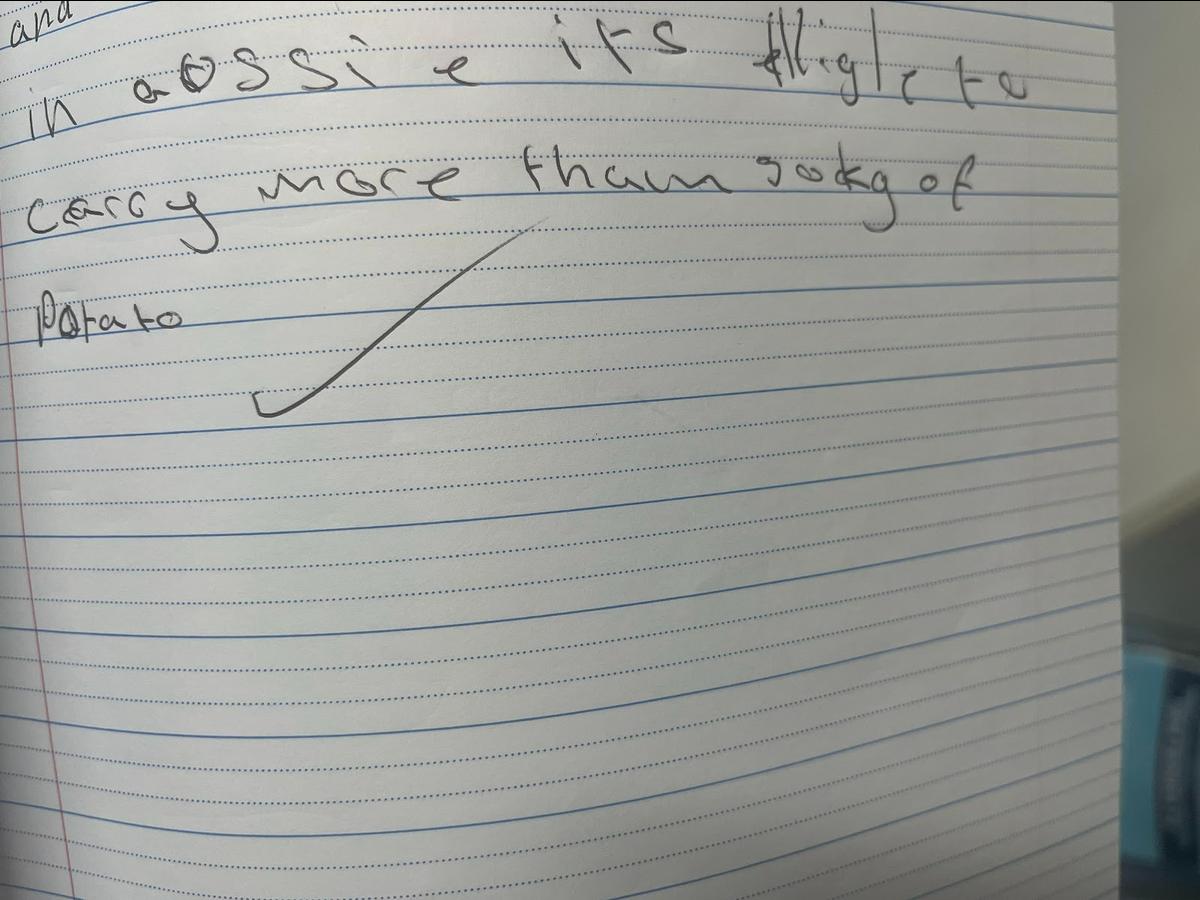 and
in aossie its illigle to
carry more tham 50kg of
Potato